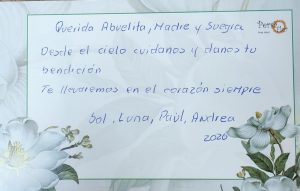 Querida Abuelita, Madre y Suegra
Desde el cielo cuidanos y danos tu
bendición
Te llevaremos en el corazón siempre
Sol, Luna, Paúl, Andrea
2020